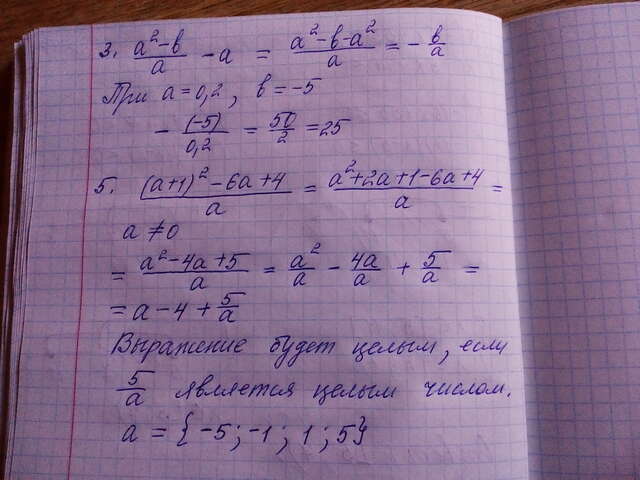 3. (a²-b)/a - a = (a²-b-a²)/a = - b/a
При a=0,2, b=-5
- (-5)/0,2 = 50/2 = 25
5. ((a+1)²-6a+4)/a = (a²+2a+1-6a+4)/a =
a≠0
= (a²-4a+5)/a = a²/a - 4a/a + 5/a =
= a-4+5/a
Выражение будет целым, если
5/a является целым числом.
a = {-5; -1; 1; 5}